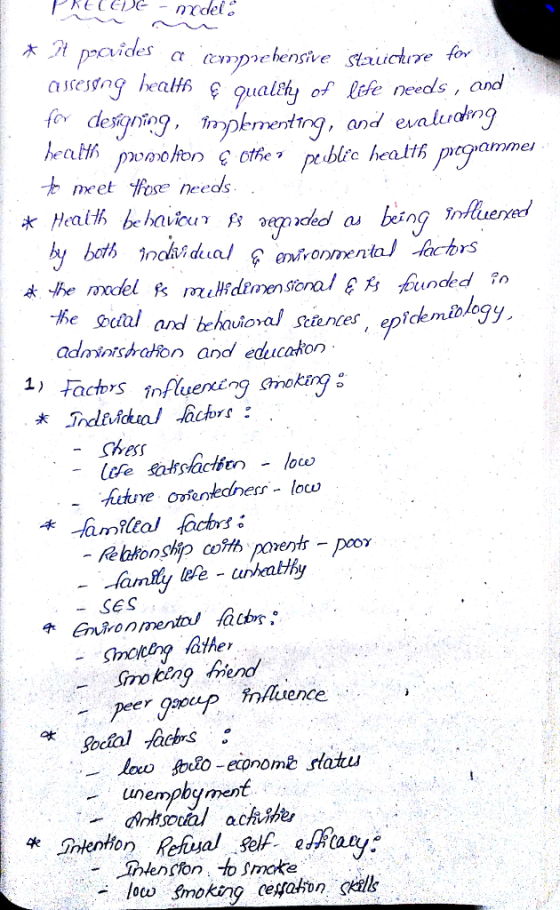 PRECEDE - model:
* It provides a comprehensive structure for
assessing health & quality of life needs, and
for designing, implementing, and evaluating
health promotion & other public health programmes
to meet those needs.
* Health behaviour is regarded as being influenced
by both individual & environmental factors
* the model is multidimensional & is founded in
the social and behavioral sciences, epidemiology,
administration and education.
1) Factors influencing smoking:
* Individual factors:
- Stress
- Life satisfaction - low
- future orientedness - low
* familial factors:
- Relationship with parents - poor
- family life - unhealthy
- SES
* Environmental factors:
- Smoking father
- Smoking friend
- peer group influence
* Social factors :
- low socio-economic status
- unemployment
- Antisocial activities
* Intention Refusal self-efficacy:
- Intension to smoke
- low smoking cessation skills